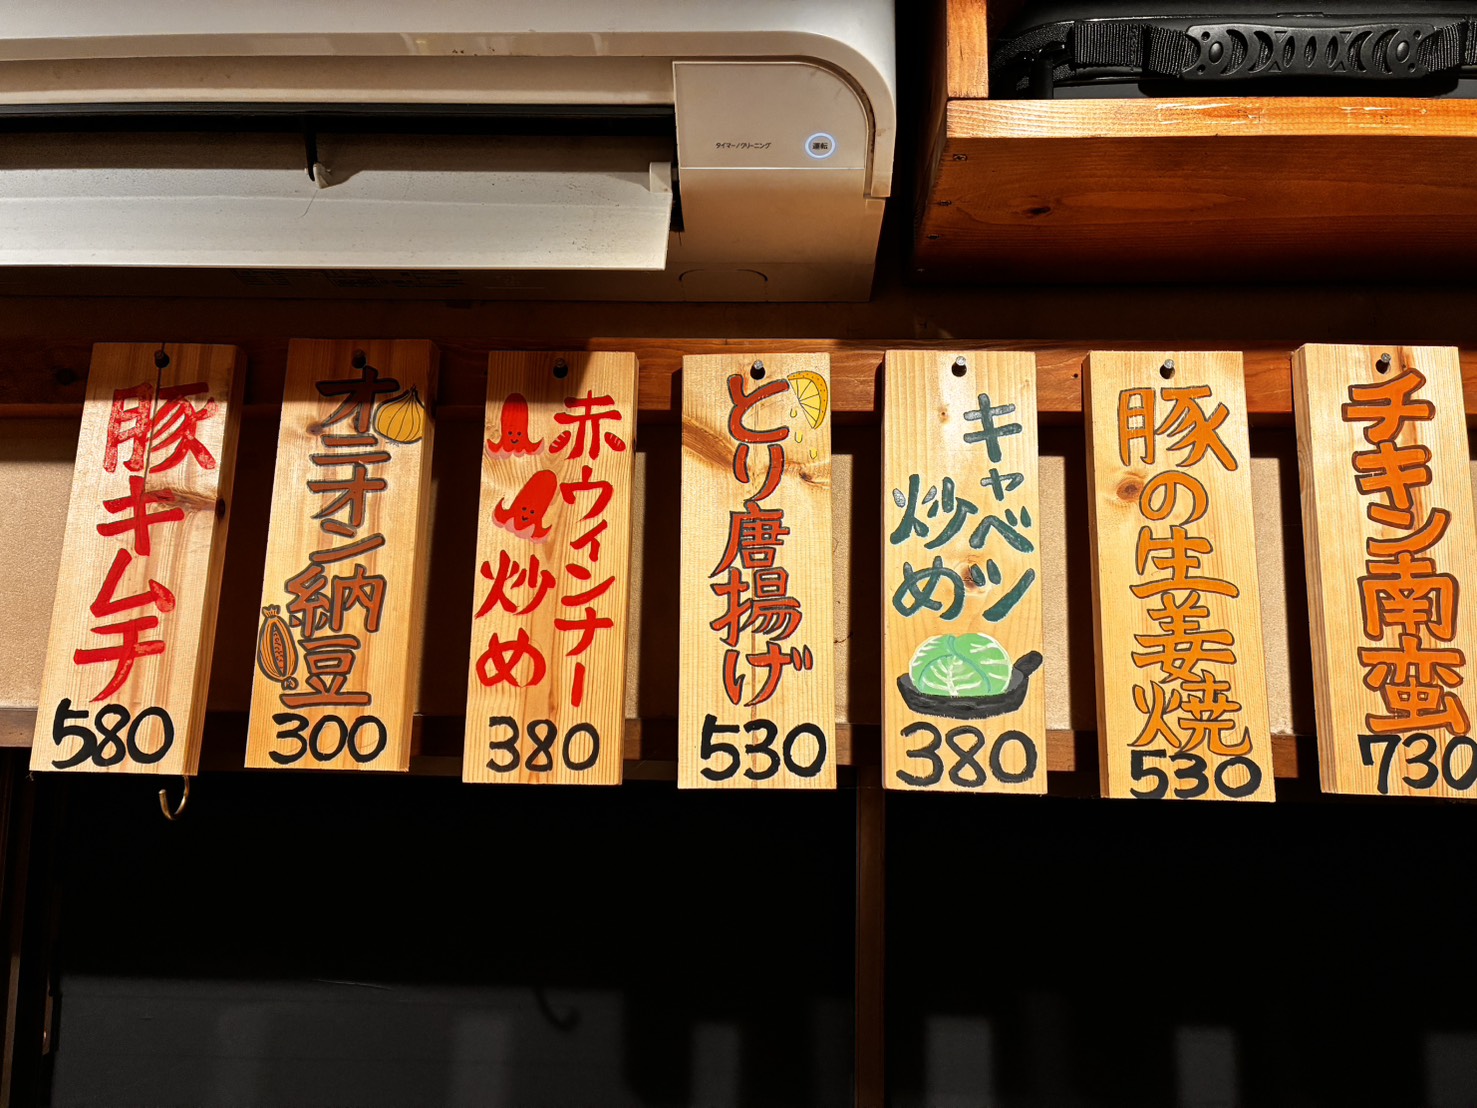 タイマー/クリーニング
運転
豚キムチ
580
オニオン納豆
300
赤ウィンナー
炒め
380
とり唐揚げ
530
キャベツ
炒め
380
豚の生姜焼
530
チキン南蛮
730